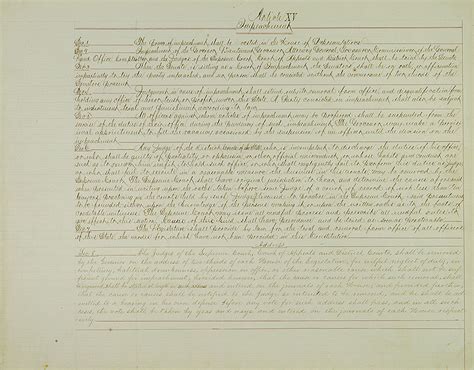 Article XV
Impeachment
Sec 1 The Power of impeachment shall be vested in the House of Representatives
Sec 2 Impeachment of the Governor, Lieutenant Governor, Attorney General, Commissioner of the General
Land Office, and the Judges of the Supreme Court, Court of Appeals and District Court, shall be tried by the Senate
Sec 3 When the Senate is sitting as a Court of Impeachment, the Senators shall be on oath, or affirmation
impartially to try the party impeached, and no person shall be convicted without the concurrence of two thirds of the
Senators present
Sec 4 Judgment in cases of impeachment shall extend only to removal from office, and disqualification from
holding any office of honor, trust or profit under this State. A Party convicted on impeachment shall also be subject
to indictment trial and punishment according to law
Sec 5 All officers against whom articles of impeachment may be preferred, shall be suspended from the
exercise of the duties of their office, during the pendency of such impeachment. The Governor may make a provisional
appointment to fill the vacancy occasioned by the suspension of an officer until the decision on the
impeachment
Sec 6 Any Judge of the District Courts of the State who is incompetent to discharge the duties of his office,
or who shall be guilty of partiality, or oppression, or other official misconduct, or whose habits and conduct are
such as to render him unfit to hold such office, or who shall negligently fail to perform his duties as judge
or who shall fail to execute in a reasonable measure the business in his courts may be removed by the
Supreme Court. The Supreme Court shall have original jurisdiction to hear and determine the causes aforesaid
when presented in writing upon the oaths taken before some judge of a court of record of not less than ten
lawyers, practicing in the courts held by such judge, and licensed to practice in the Supreme Court
The Supreme Court may issue all needful process and prescribe all needful rules to
give effect to this section. Causes of this kind shall have precedence and be tried as soon as practicable
Sec 7 The Legislature shall provide by law for the trial and removal from office of all officers
of this State, the modes for which have not been provided in this Constitution
Address
Sec 8 The Judges of the Supreme Court, Court of Appeals and District Courts, shall be removed
by the Governor on the address of two thirds of each House of the Legislature, for wilful neglect of duty,
incompetency, habitual drunkenness, oppression in office, or other reasonable cause which shall not be
sufficient ground for impeachment; Provided however, that the cause or causes for which such removal shall be
required shall be stated at length in such address and entered on the journals of each House; and provided further
that the cause or causes shall be notified to the judge so intended to be removed, and he shall be ad
mitted to a hearing in his own defense before any vote for such address shall pass, and in all such
cases, the vote shall be taken by yeas and nays and entered on the journals of each House respect
ively